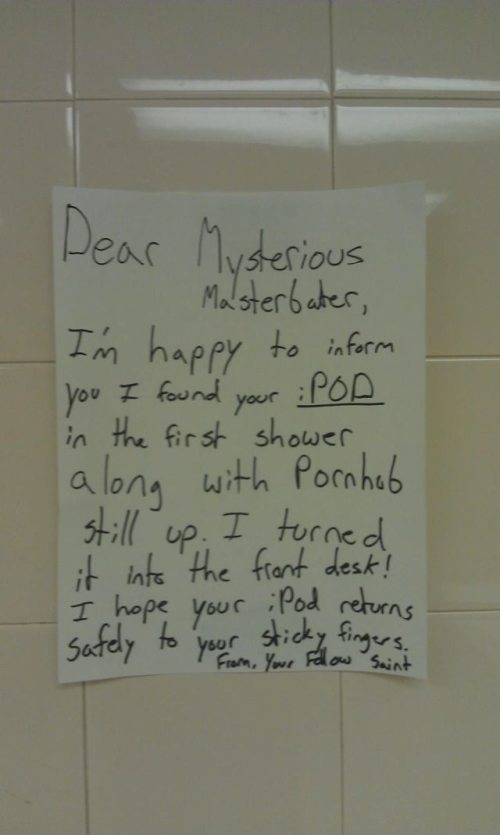 Dear Mysterious
Masterbater,
I'm happy to inform
you I found your iPOD
in the first shower
along with Pornhub
still up. I turned
it into the front desk!
I hope your iPod returns
safely to your sticky fingers.
From, Your Fellow Saint